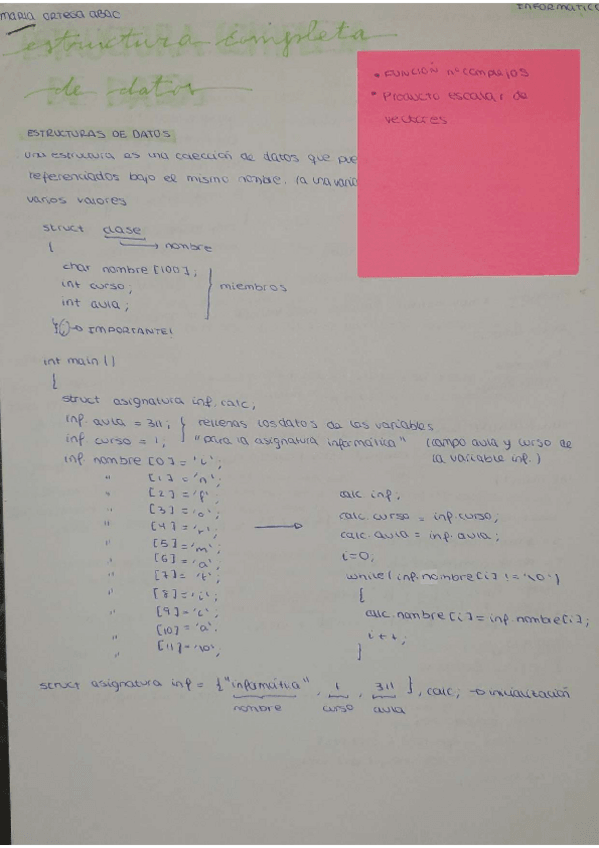 MARIA ORTEGA ABAC
INFORMÁTICA
estructura completa
de datos
• FUNCIÓN nº complejos
• Producto escalar de
vectores
ESTRUCTURAS DE DATOS
una estructura es una colección de datos que pue
referenciados bajo el mismo nombre. (a una varia
varios valores
struct clase
→ nombre
{
char nombre [100];
int curso;
int aula;
miembros
}; → IMPORTANTE!
int main ()
{
struct asignatura inf, calc;
inf. aula = 311; } rellenas los datos de las variables
inf. curso = 1; } "para la asignatura informática" (campo aula y curso de
la variable inf.)
inf nombre [0] = 'i';
" [1] = 'n';
" [2] = 'f';
" [3] = 'o';
" [4] = 'r';
" [5] = 'm';
" [6] = 'a';
" [7] = 't';
" [8] = 'i';
" [9] = 'c';
" [10] = 'a';
" [11] = '\0';
→
calc. inf;
calc. curso = inf. curso;
calc. aula = inf. aula;
i=0;
while( inf. nombre [i] != '\0')
{
calc. nombre [i] = inf. nombre [i];
i++;
}
struct asignatura inf = {"informática", 1, 311 }, calc; → inicialización
nombre curso aula